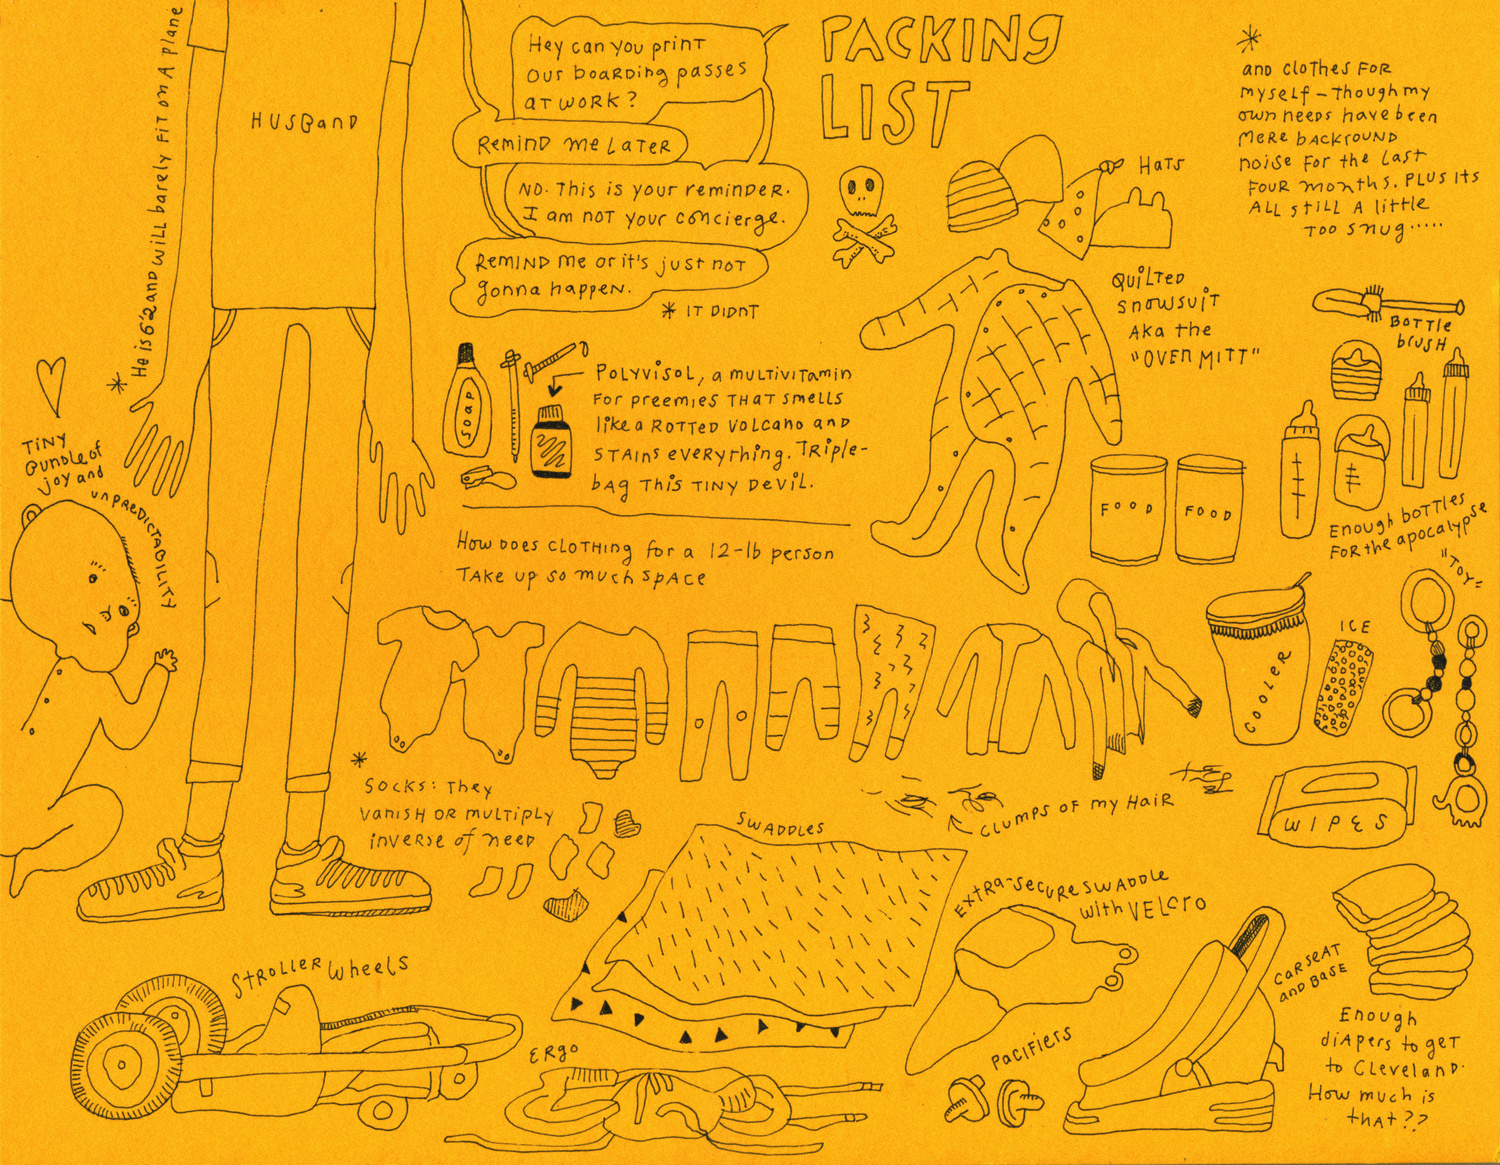 PACKING
LIST
He is 6'2 and will barely fit on a plane
HUSBAND
Hey can you print
our boarding passes
at work?
Remind me later
No. This is your reminder.
I am not your concierge.
Remind me or it's just not
gonna happen.
* It didnt
* and clothes for
myself – though my
own needs have been
mere backround
noise for the last
four months. Plus its
all still a little
too snug.....
Hats
Quilted
snowsuit
aka the
"oven mitt"
Bottle
brush
Enough bottles
for the apocalypse
"Toy"
Soap
Polyvisol, a multivitamin
for preemies that smells
like a rotted volcano and
stains everything. Triple-
bag this tiny devil.
How does clothing for a 12-lb person
take up so much space
FOOD
FOOD
Tiny
Bundle of
joy and
unpredictability
COOLER
ICE
WIPES
* Socks: They
vanish or multiply
inverse of need
Clumps of my hair
Swaddles
Extra-secure swaddle
with velcro
Carseat
and base
Stroller wheels
Ergo
Pacifiers
Enough
diapers to get
to Cleveland.
How much is
that??